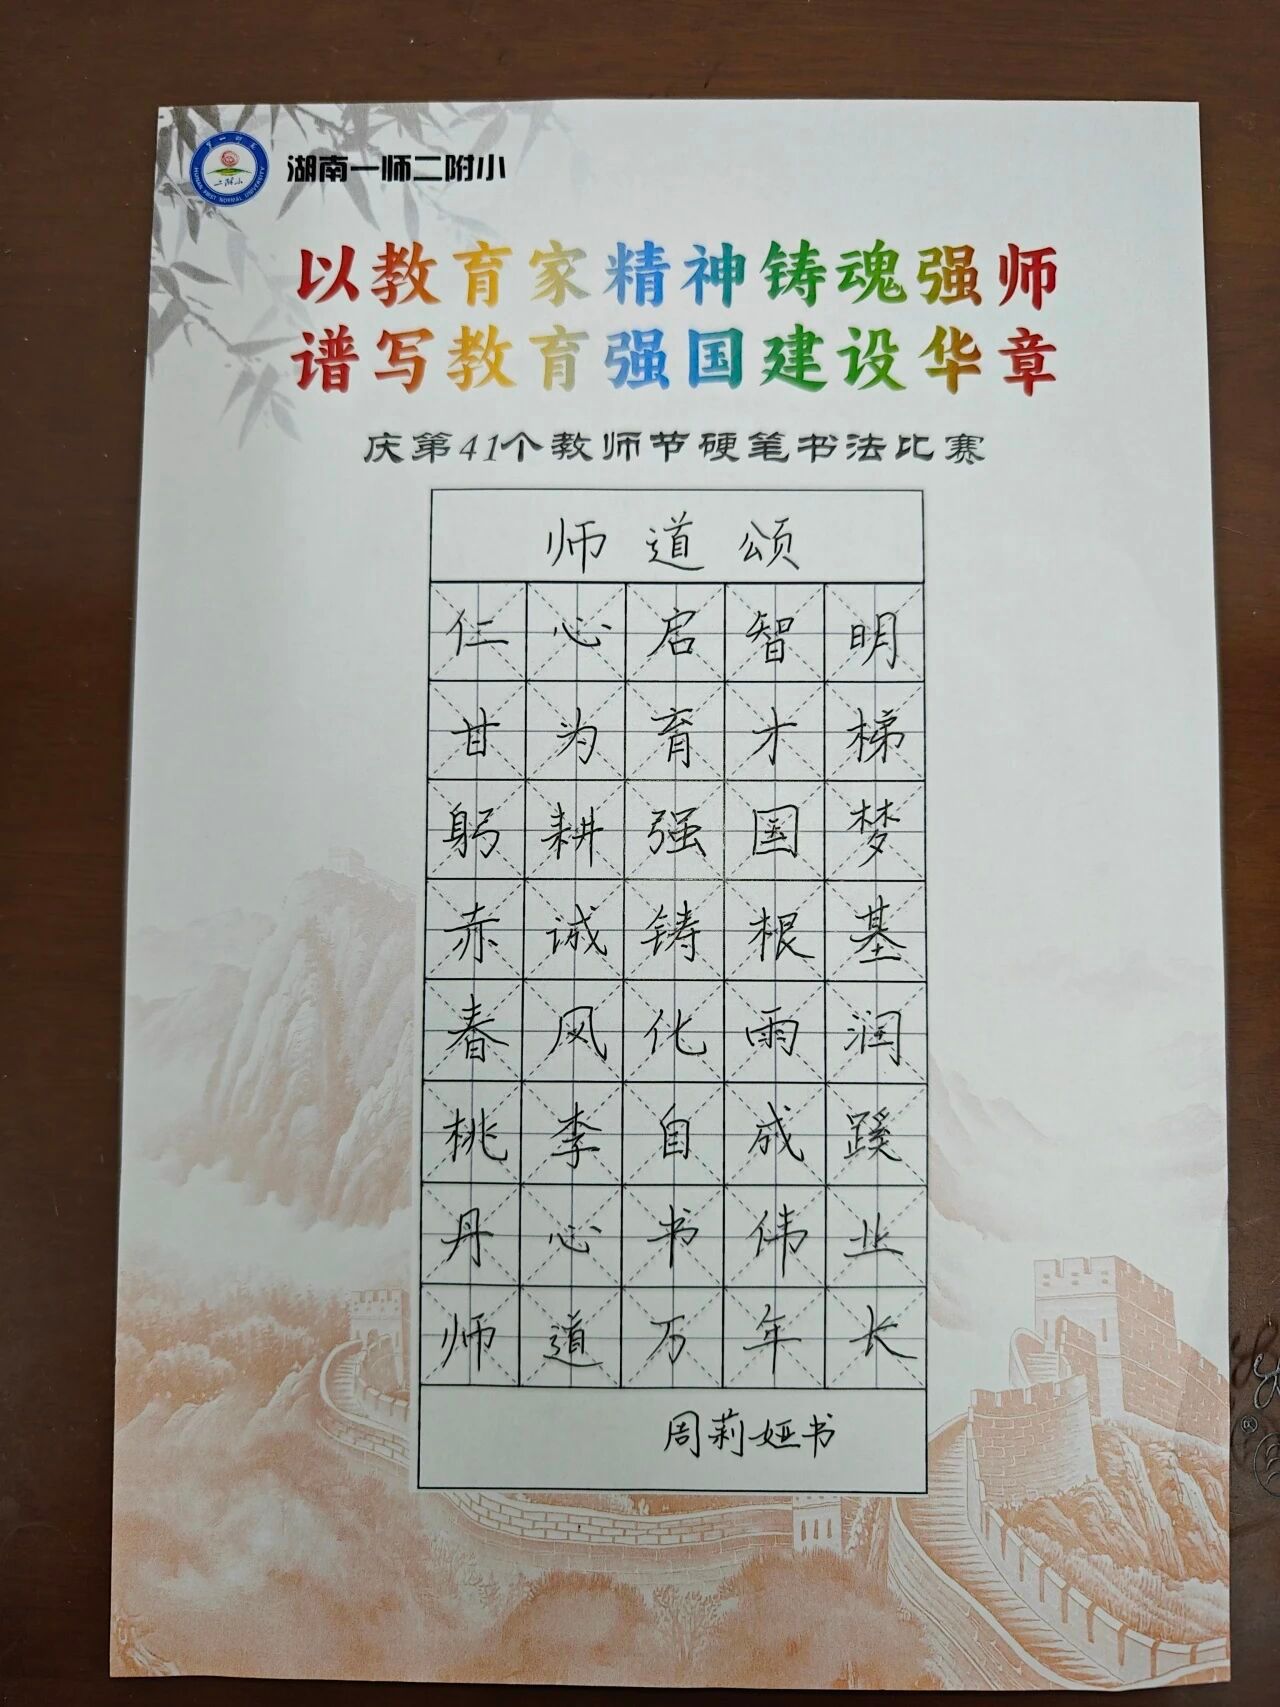 湖南一师二附小
二附小
HUNAN FIRST NORMAL UNIVERSITY
以教育家精神铸魂强师
谱写教育强国建设华章
庆第41个教师节硬笔书法比赛
师道颂
仁心启智明
甘为育才梯
躬耕强国梦
赤诚铸根基
春风化雨润
桃李自成蹊
丹心书伟业
师道万年长
周莉娅书